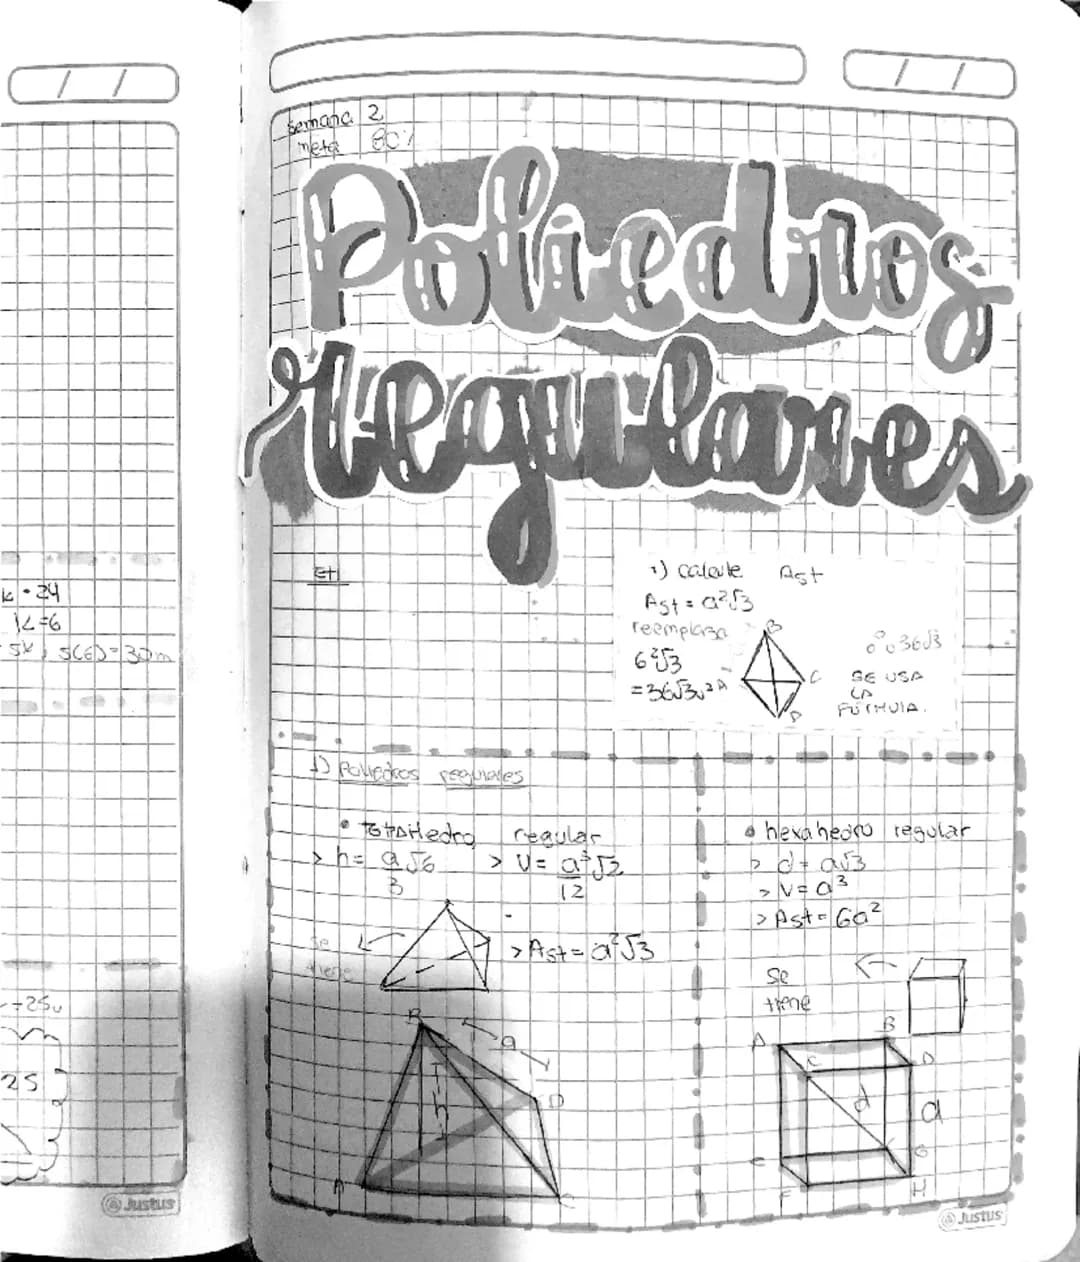 k · 24
k=6
5k, 5(6)=30m
=25u
25
Justus
Semana 2
meta 80%
Poliedros
regulares
1) calcule Ast
Ast = a²√3
reemplaza
6²√3
=36√3u²
B
A
C
D
36√3
SE USA
LA
FÓRMULA.
1) Poliedros regulares
• TetraHedro regular
> h= a√6
3
> V= a³√2
12
> Ast= a²√3
se
tiene
B
a
h
D
A
C
• hexahedro regular
> d= a√3
> V= a³
> Ast= 6a²
se
tiene
A
B
C
D
d
a
E
G
F
H
Justus